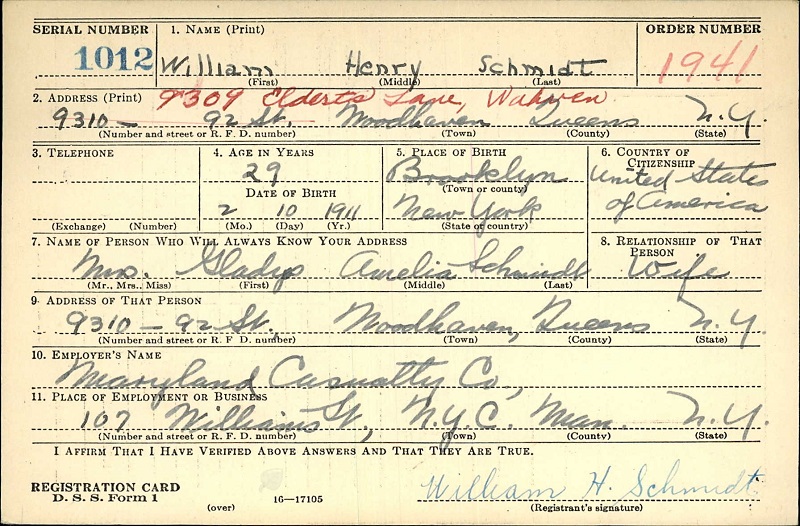 SERIAL NUMBER 1. NAME (Print) ORDER NUMBER
1012 William Henry Schmidt 1941
(First) (Middle) (Last)
2. ADDRESS (Print) 9309 Elderts Lane, Wdhven
9310 - 92 St. Woodhaven Queens N.Y.
(Number and street or R. F. D. number) (Town) (County) (State)
3. TELEPHONE 4. AGE IN YEARS 5. PLACE OF BIRTH 6. COUNTRY OF CITIZENSHIP
29 Brooklyn United States
DATE OF BIRTH (Town or county)
2 10 1911 New York of America
(Exchange) (Number) (Mo.) (Day) (Yr.) (State or country)
7. NAME OF PERSON WHO WILL ALWAYS KNOW YOUR ADDRESS 8. RELATIONSHIP OF THAT PERSON
Mrs. Gladys Amelia Schmidt Wife
(Mr., Mrs., Miss) (First) (Middle) (Last)
9. ADDRESS OF THAT PERSON
9310 - 92 St. Woodhaven, Queens N.Y.
(Number and street or R. F. D. number) (Town) (County) (State)
10. EMPLOYER'S NAME
Maryland Casualty Co.
11. PLACE OF EMPLOYMENT OR BUSINESS
107 Williams St, N.Y.C. Man. N.Y.
(Number and street or R. F. D. number) (Town) (County) (State)
I AFFIRM THAT I HAVE VERIFIED ABOVE ANSWERS AND THAT THEY ARE TRUE.
REGISTRATION CARD
D. S. S. Form 1 (over) 16—17105 William H. Schmidt
(Registrant's signature)